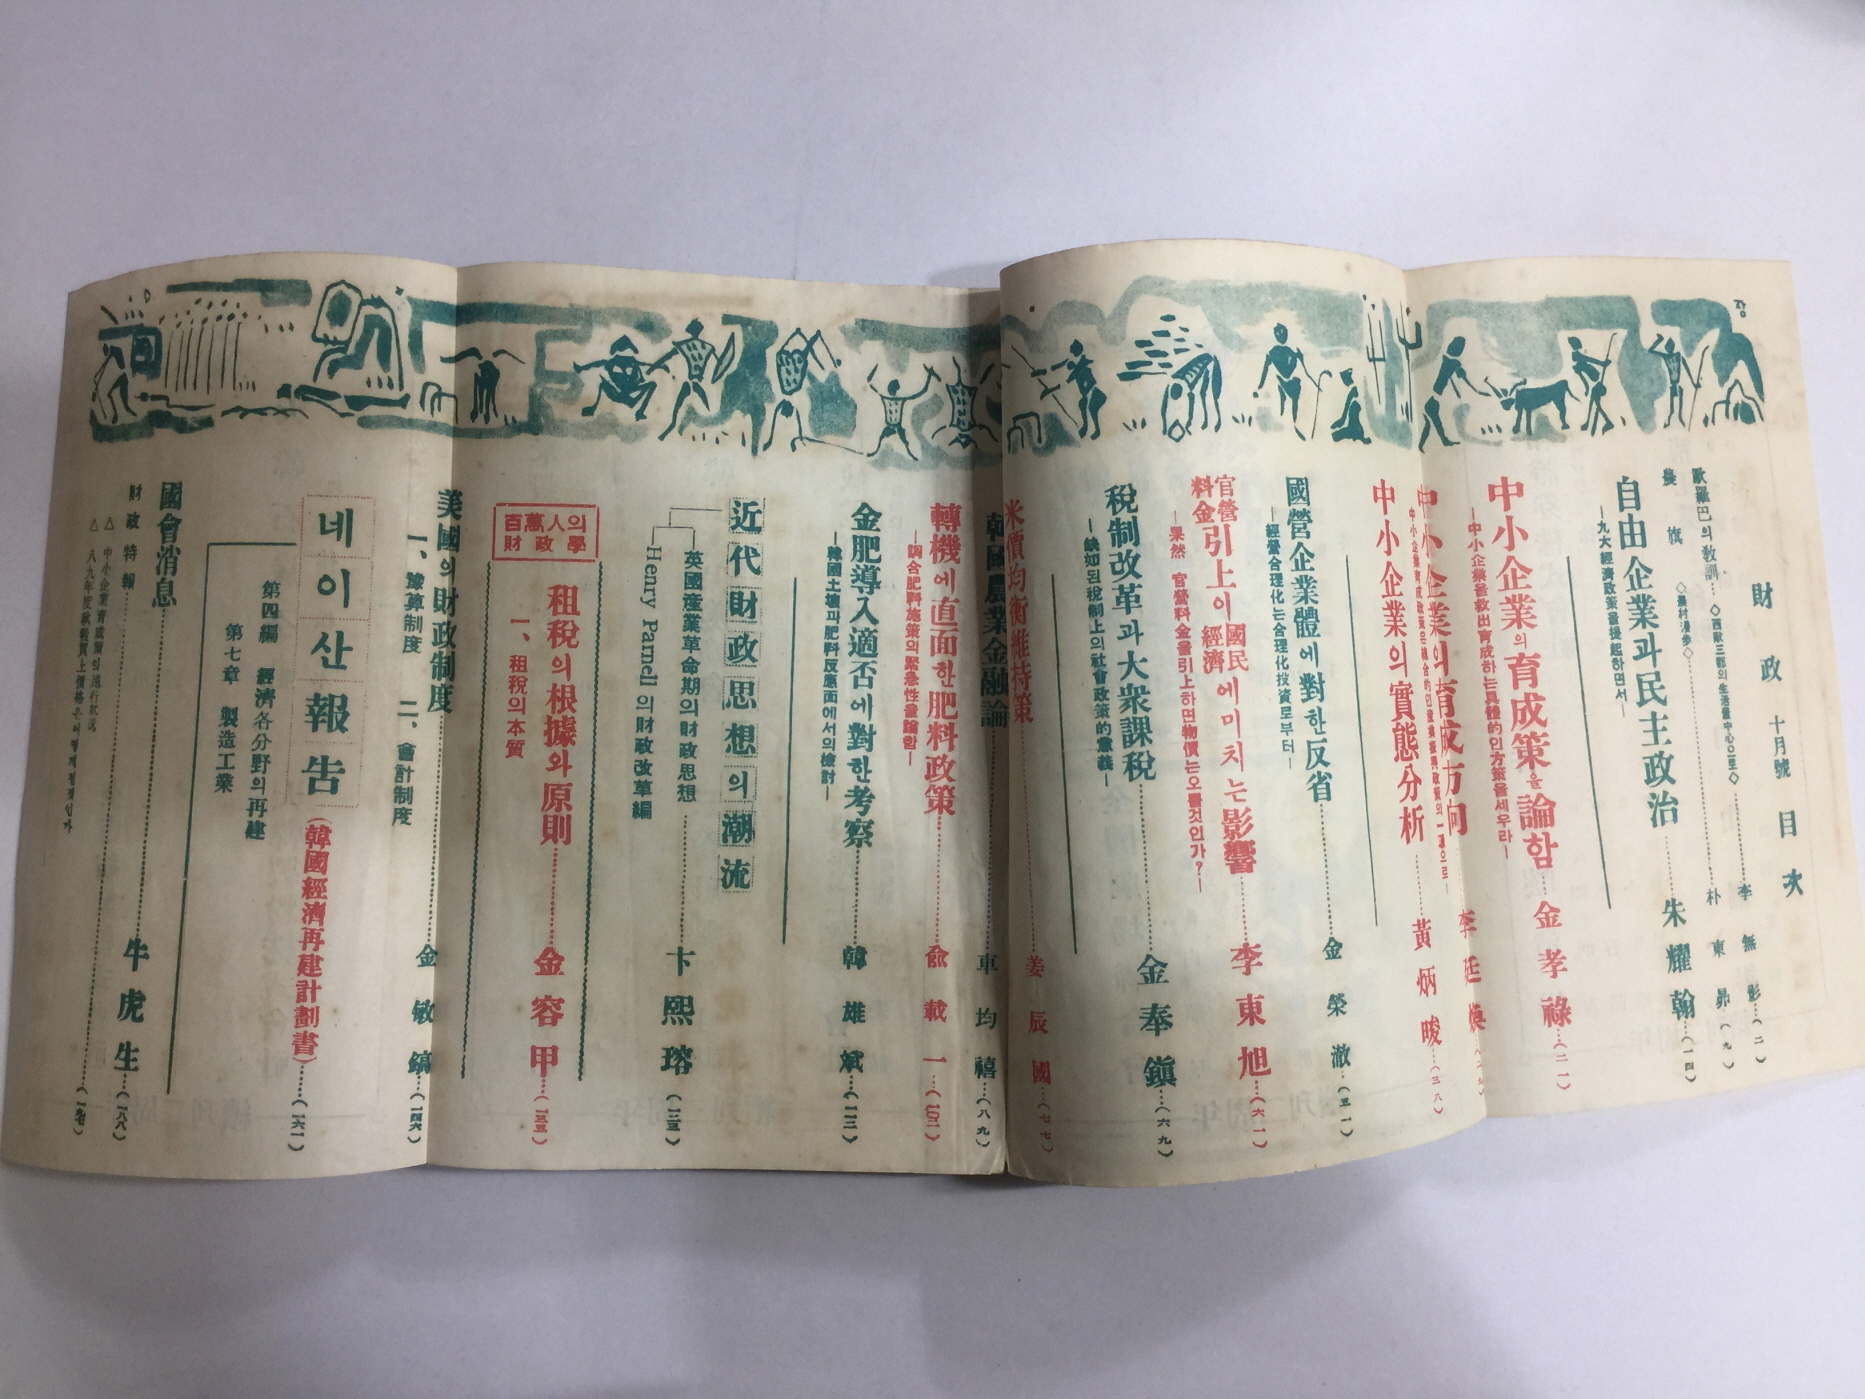 財政 十月號 目次
歐羅巴의 敎訓…◇西歐三都의 生活을 中心으로◇…李無影…(二)
農旗 ◇農村漫步◇…朴東昴(九)
自由企業과 民主政治…朱耀翰…(一四)
―九大經濟政策을 提起하면서―
中小企業의 育成策을 論함…金孝祿…(二一)
―中小企業을 救出育成하는 具體的인 方策을 세우라―
中小企業의 育成方向 李廷煥
中小企業의 實態分析…黃炳晙…(三八)
國營企業體에 對한 反省…金榮澈…(五一)
―經營合理化는 合理化投資로부터―
官營料金引上이 國民經濟에 미치는 影響…李東旭…(六一)
―果然 官營料金을 引上하면 物價는 오를것인가?―
稅制改革과 大衆課稅…金奉鎭…(六九)
―缺如된 稅制上의 社會政策的 意義―
米價均衡維持策 姜辰國…(七七)
韓國農業金融論…車均禧…(八九)
轉機에 直面한 肥料政策…兪載一…(一〇二)
―調合肥料施策의 緊急性을 論함―
金肥導入適否에 對한 考察…韓雄斌…(一一三)
―韓國土壤과 肥料反應面에서의 檢討―
近代財政思想의 潮流
英國産業革命期의 財政思想…卞熙瑢…(一二三)
Henry Parnell의 財政改革編
百萬人의 財政學
租稅의 根據와 原則…金容甲…(一三五)
一、租稅의 本質
美國의 財政制度…金敏鎬…(一四六)
一、豫算制度 二、會計制度
네이산報告(韓國經濟再建計劃書)…(一六一)
第四編 經濟各分野의 再建
第七章 製造工業
國會消息…牛虎生…(一八八)
財政特報…(一九七)
△ 中小企業育成策의 進行狀況
△ 八九年度秋穀買上價格은 어떻게 될것인가